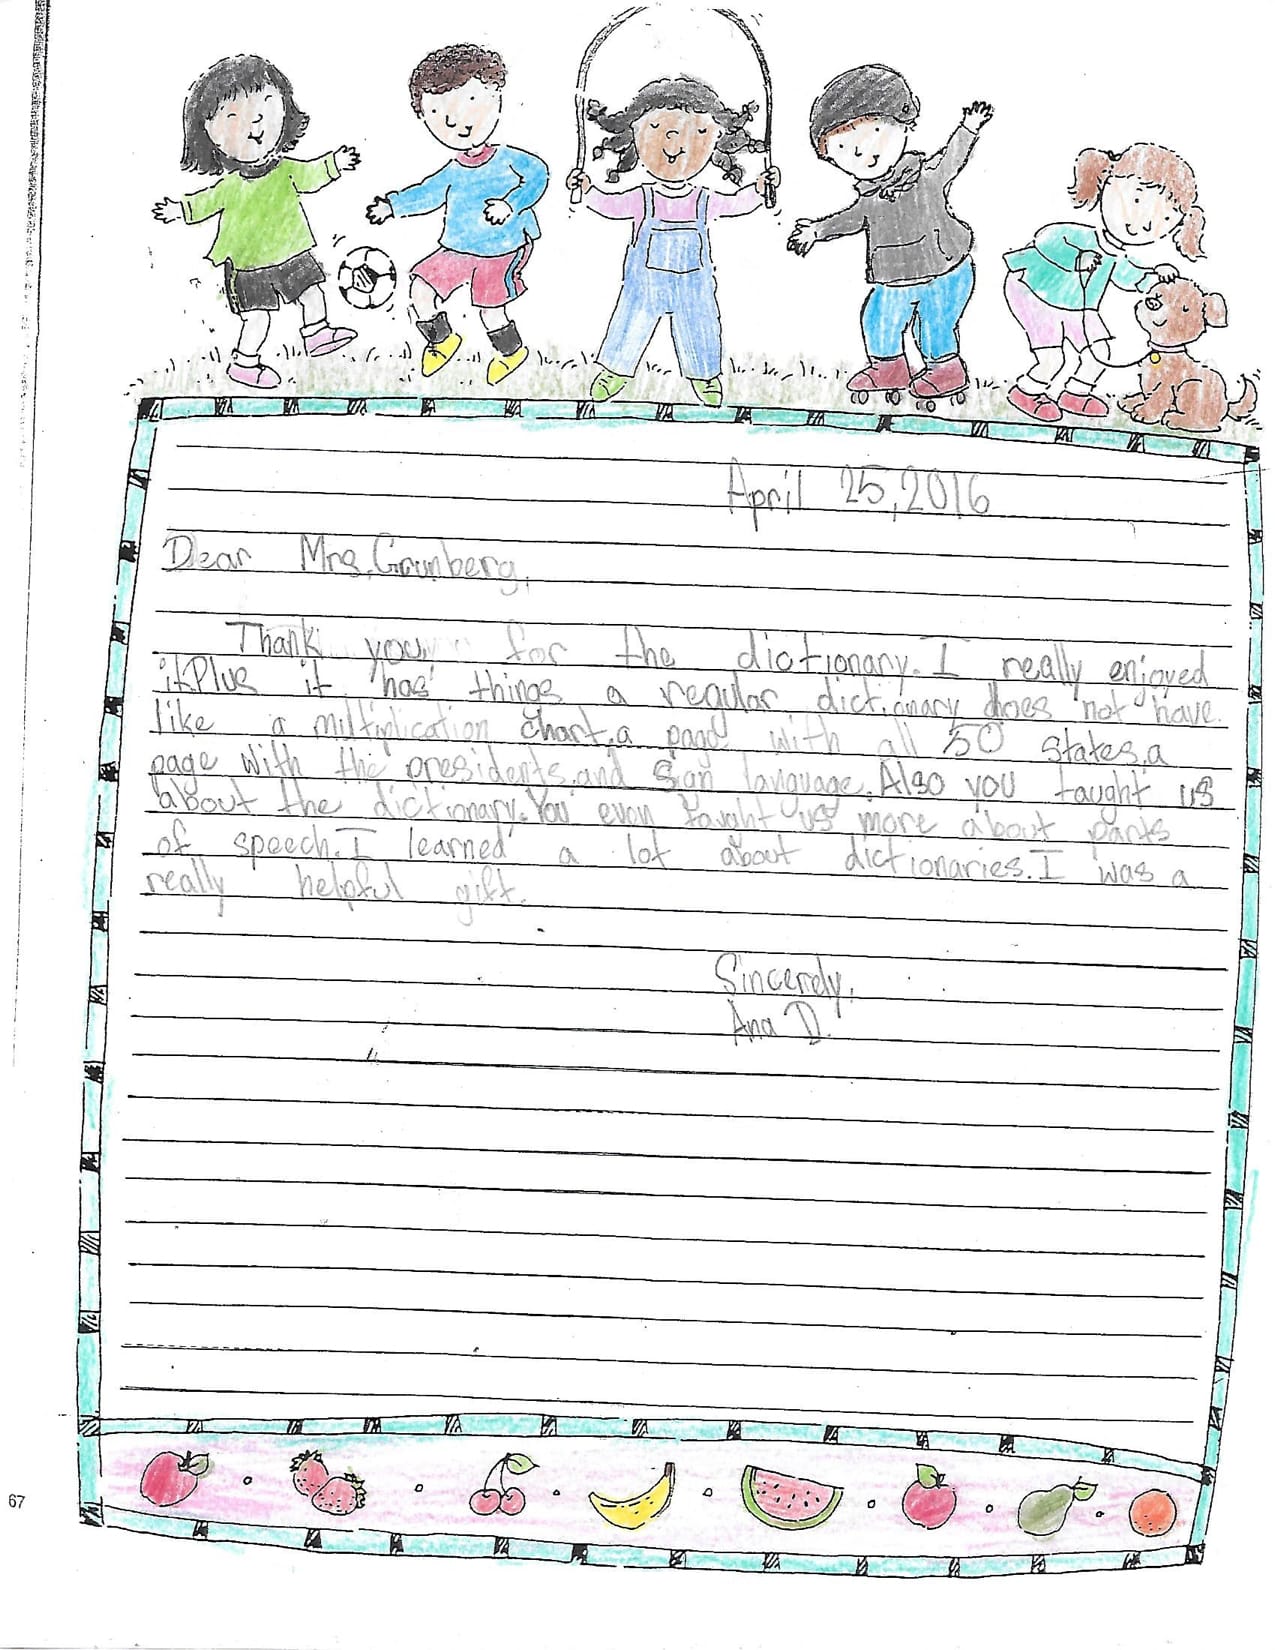 April 25, 2016
Dear Mrs. Grunberg,
Thank you for the dictionary. I really enjoyed
it. Plus it has things a regular dictionary does not have.
like a multiplication chart, a page with all 50 states, a
page with the presidents, and sign language. Also you taught us
about the dictionary. You even taught us more about parts
of speech. I learned a lot about dictionaries. I was a
really helpful gift.
Sincerely,
Ana D.
67